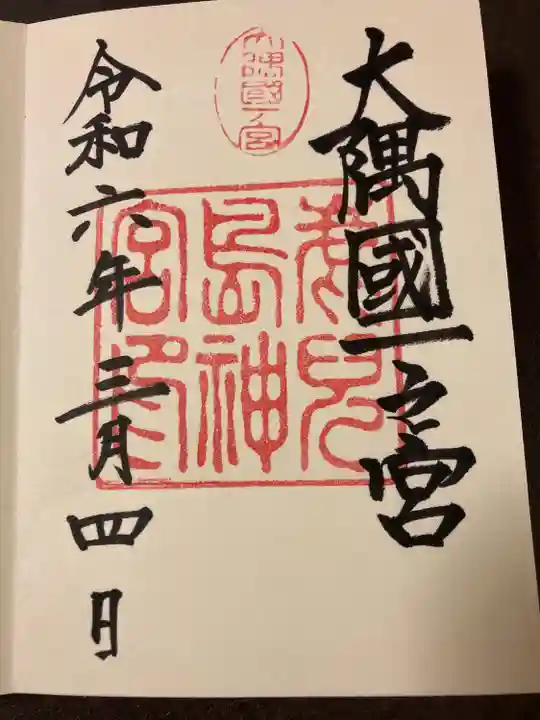 大隅國一之宮
大隅國一ノ宮
鹿兒島神宮印
令和六年三月四日